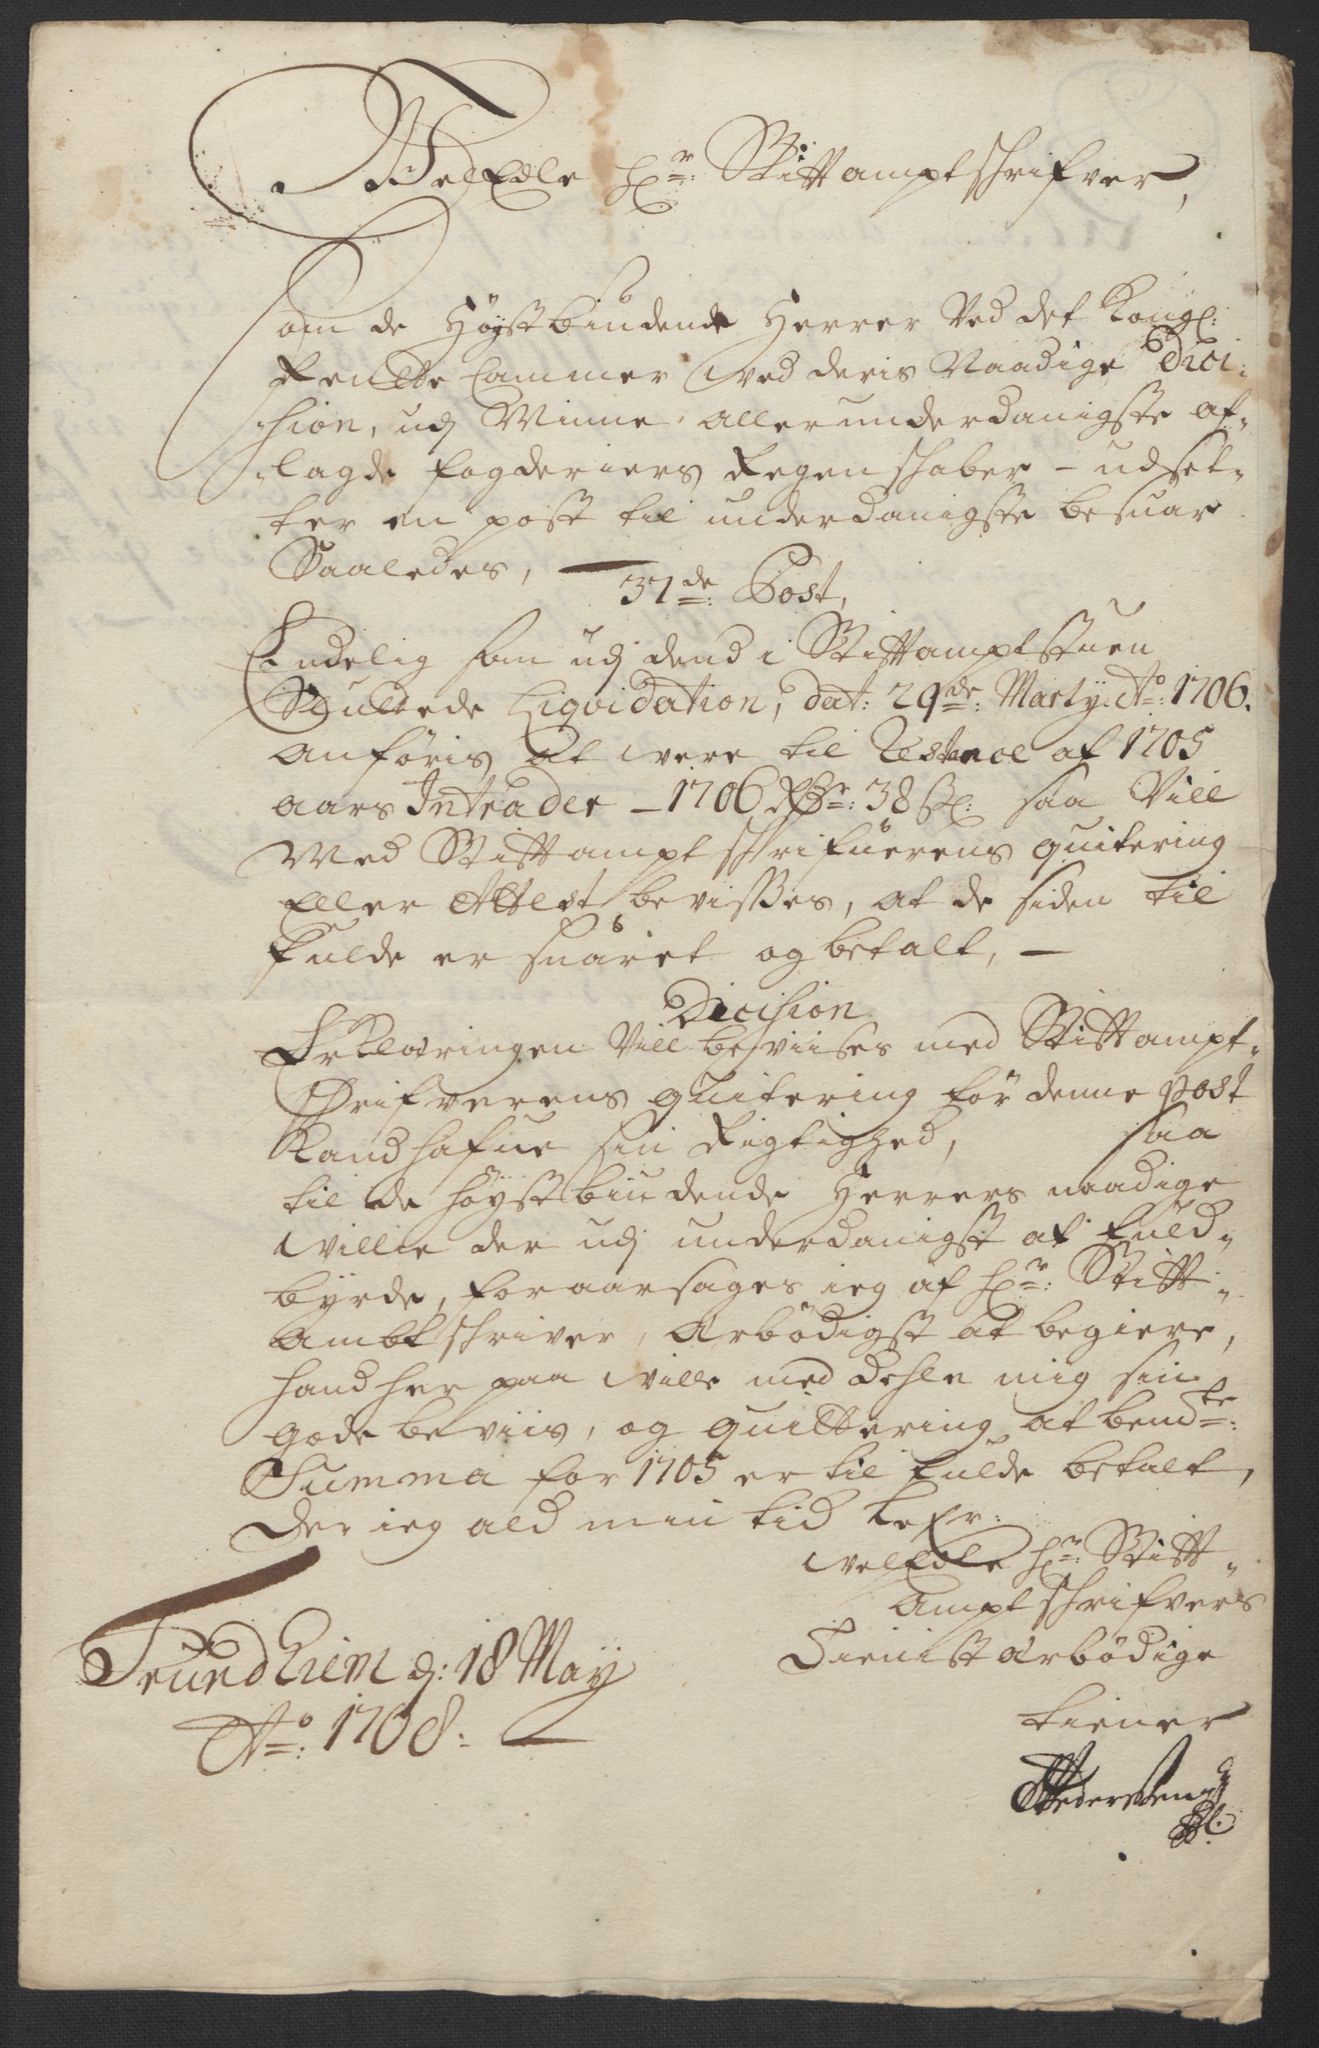 WelEdle H:r Stiftamptschrifver,
Som de Høystbiudende Herrer Ved det Kongl:
Rentte Cammer Wed deris Naadige Dici:
shion, udj Minne allerunderdanigste af-
lagde fogderiers Regenskaber - udset-
ter en post til underdanigste besuar
Saaledes,
37de Post,
Endelig som udj dend i Stiftamptstuen
Sluttede Liqvidation, dat: 29de: Marty Ao: 1706.
anføris at were til Restance af 1705
aars Intrader - 1706 Rdr: 38 sk: saa Vill
Med Stiftamptschrifuerens quitering
Eller Attest bevisses, at de siden til
fulde er suaret og betalt, -
Dicision
Erklæringen Vill beviises med Stiftampt-
schrifverens quitering før denne post
Kand hafue sin Rigtighed, saa
til de høystbiudende Herrers naadige
Willie der udj underdanigst at fuld-
byrde, foraarsages ieg af Hr: Stift-
ambtschriver, ærbödigst at begiere,
hand her paa Wille meddehle mig sin
gode beviis, og quittering at bemdte:
Summa for 1705 er til fulde betalt,
Der ieg ald min tid lefr:
WelEdle Hr: Stift-
Amptschrifvers
Tienistærbödige
tiener
Trundhiem d: 18 May
Ao: 1708: